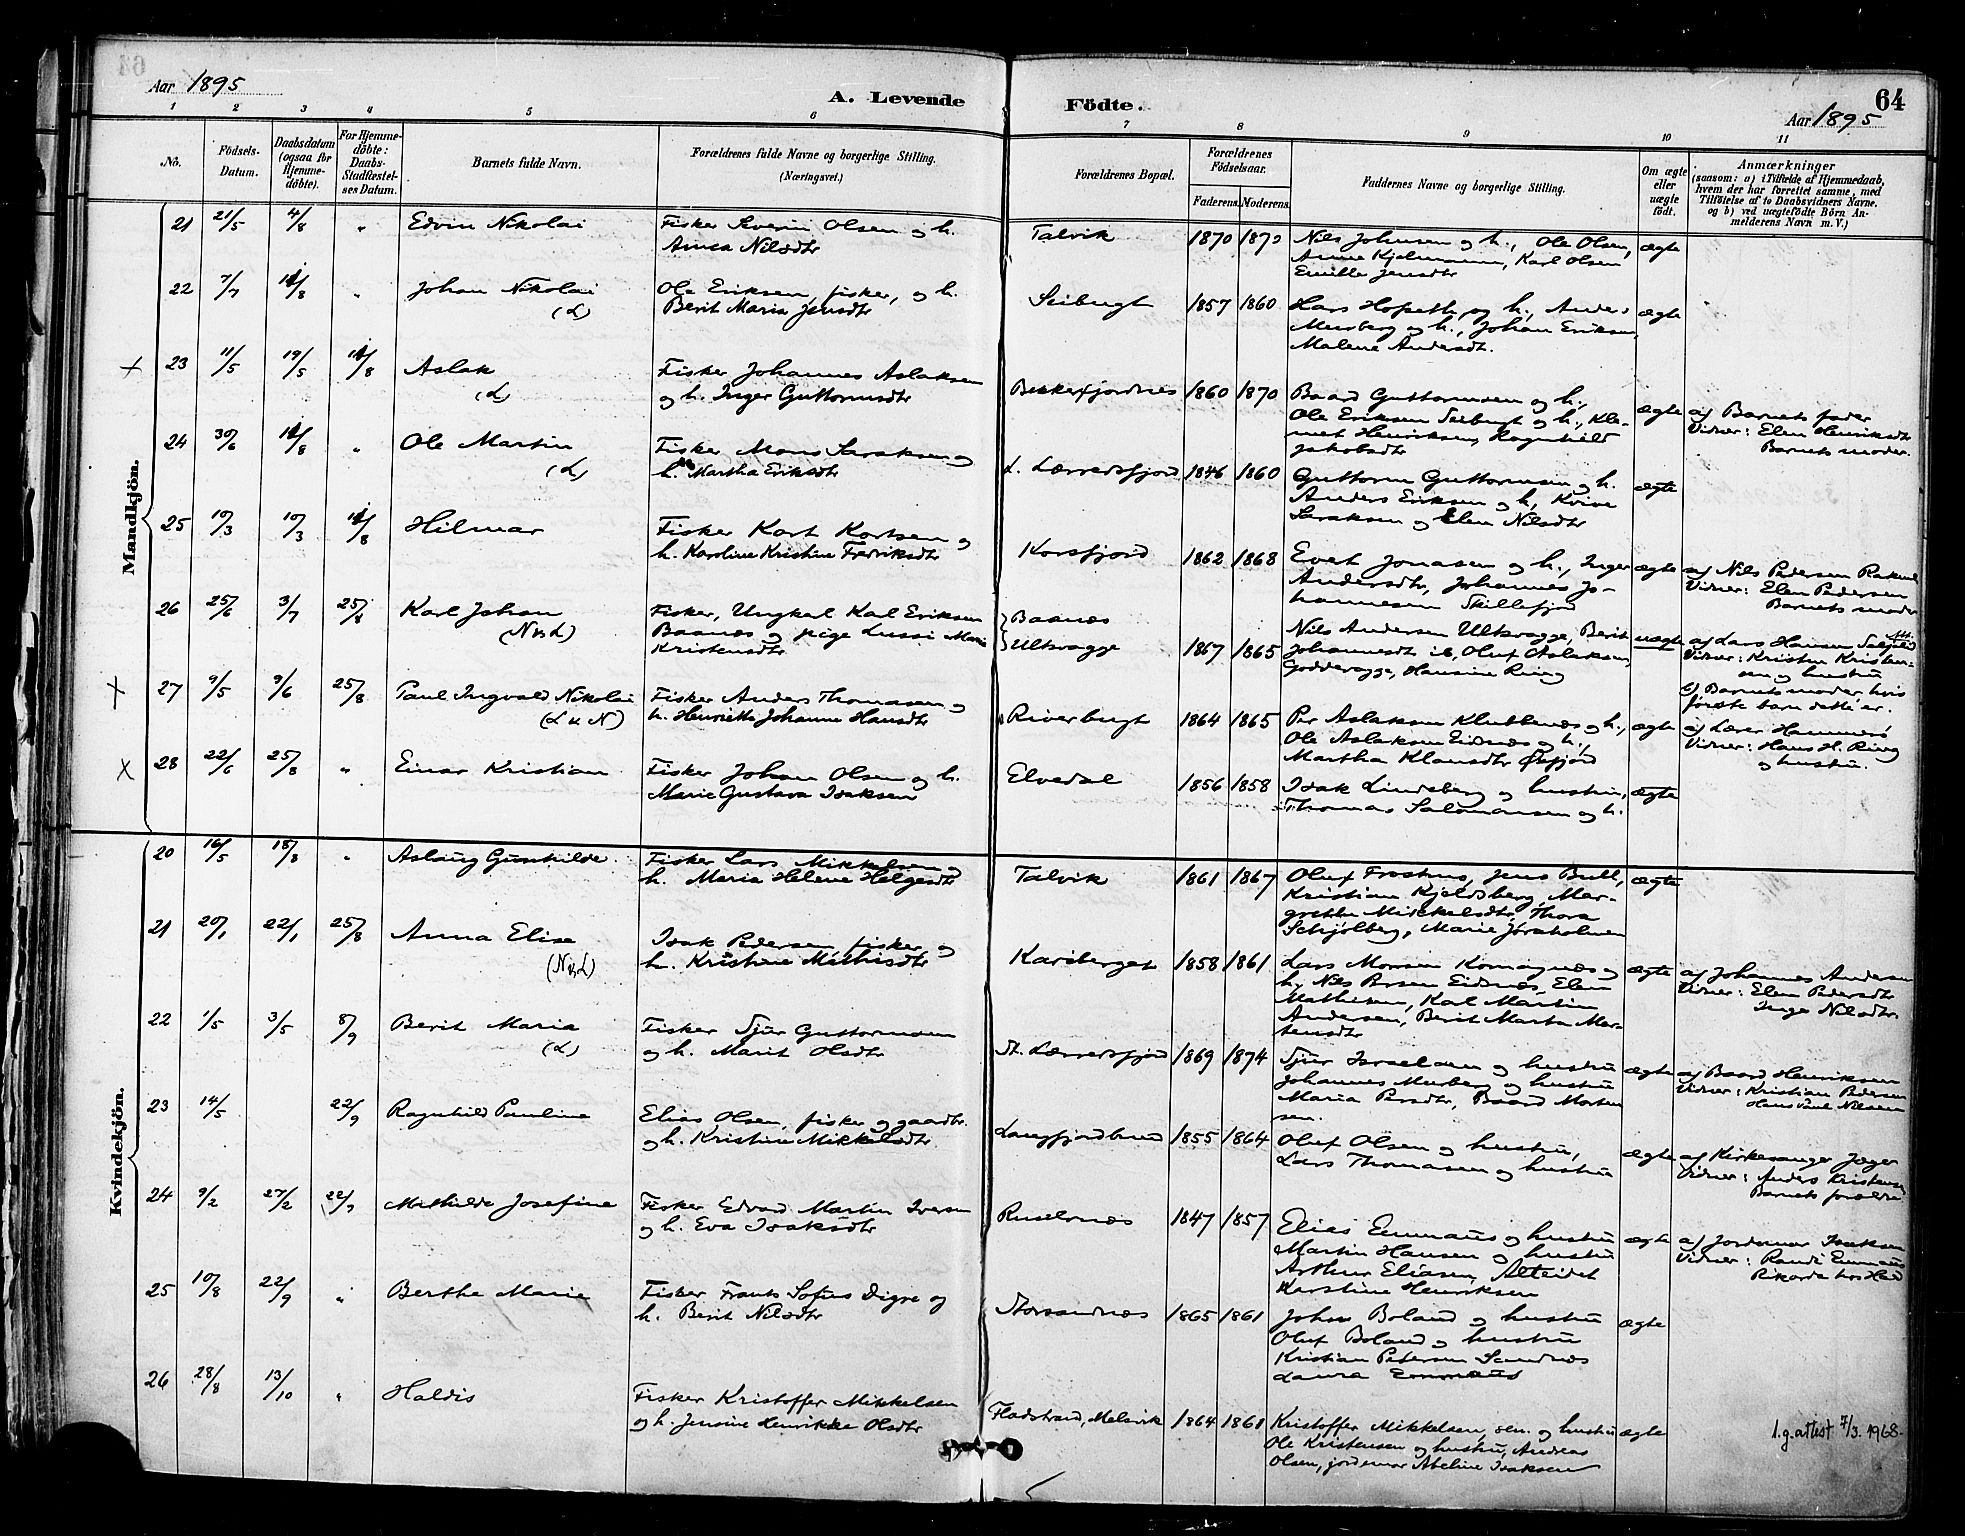 Aar 1895
A. Levende Födte.
64
Aar 1895
1 2 3 4 5 6 7 8 9 10 11
No.
Födsels-Datum.
Daabsdatum (ogsaa for Hjemme-döbte).
For Hjemme-döbte: Daabs-Stadfæstel-ses Datum.
Barnets fulde Navn.
Forældrenes fulde Navne og borgerlige Stilling. (Næringsvei.)
Forældrenes Bopæl.
Forældrenes Födselsaar.
Faderens. Moderens.
Faddernes Navne og borgerlige Stilling.
Om ægte eller uægte födt.
Anmærkninger
(saasom: a) i Tilfælde af Hjemmedaab,
hvem der har forrettet samme, med
Tilföielse af to Daabsvidners Navne.
og b) ved uægtefödte Börn An-
melderens Navn m. V.)
Mandkjön.
21 21/5 4/8 " Edvin Nikolai
Fisker Severin Olsen og h.
Anna Nilsdtr
Talvik 1870 1870
Nils Johnsen og h., Ole Olsen,
Anne Kjelmann, Karl Olsen
Emilie Jensdtr
ægte
22 7/7 11/8 " Johan Nikolai
(L)
Ole Eriksen, fisker, og h.
Berit Maria Jensdtr
Seibugt 1857 1860
Lars Hofseth og h., Anders
Murberg og h., Johan Eriksen,
Malene Andersdtr.
ægte
23 11/5 19/5 11/8 Aslak
(L)
Fisker Johannes Aslaksen
og h. Inger Guttormsdtr
Bekkerfjordnes 1860 1870
Baard Guttormsen og h.,
Ole Eriksen Seibugt og h., Kle-
met Henriksen, Ragnhild
Jakobsdtr
ægte
af Barnets fader
Vidner: Elen Henriksdtr
Barnets moder.
24 30/6 11/8 " Ole Martin
(L)
Fisker Mons Saraksen og
h. Martha Eriksdtr
L. Lærredsfjord 1846 1860
Guttorm Guttormsen og h.
Anders Eriksen og h., Kvive
Saraksen og Elen Nilsdtr
ægte
25 10/3 10/3 11/8 Hilmar
Fisker Kort Kortsen og
h. Karoline Kristine Fredriksdtr
Korsfjord 1862 1868
Evert Jonasen og h., Inger
Andersdtr, Johannes Jo-
hannesen Skillefjord
ægte
af Nils Pedersen
Vidner: Elen Pedersen
Barnets moder
26 25/6 3/7 25/8 Karl Johan
(N og L)
Fisker, Ungkarl Karl Eriksen
Baanæs og pige Lussi Marie
Kristensdtr
Baanæs
Ulsvagge 1867 1865
Nils Andersen Ulsvagge, Berit
Johannesdtr ib, Oluf Aslaksen,
Godvagge, Hansine Ring
uægte
af Lars Hansen
Vidner: Kristen Kristen-
sen og hustru
b) Barnets moder hvis
første barn dette er.
27 9/5 9/6 25/8 Paul Ingvald Nikolai
(L & N)
Fisker Anders Thomasen og
h. Henriette Johanne Hansdtr
Riverbugt 1864 1865
Per Aslaksen Klubbenæs og h.,
Ole Aslaksen Eidsnæs og h.,
Martha Klausdtr Øxfjord
ægte
af Lærer Hammerö
Vidner: Hans H. Ring
og hustru.
28 22/6 25/8 " Einar Kristian
Fisker Johan Olsen og h.
Marie Gustava Isaksen
Elvedal 1856 1858
Isak Lindberg og hustru,
Thomas Salomonsen og h.
ægte
Kvindekjön.
20 16/5 18/8 " Aslaug Gunhilde
Fisker Lars Mikkelsen og
h. Maria Helene Helgesdtr
Talvik 1861 1867
Oluf Frosthus, Jens Bull,
Kristian Kjeldsberg, Mar-
grethe Mikkelsdtr, Thora
Schjølberg, Marie Jörsholmen
ægte
21 20/1 22/1 25/8 Anna Elise
(N og L)
Isak Pedersen, fisker, og
h. Kristine Mathisdtr
Karsberget 1858 1861
Lars Monsen Komagnæs og
h., Nils Persen Eidsnæs, Elen
Mathisen, Karl Martin
Andersen, Berit Marta Mor-
tensdtr
ægte
af Johannes Andersen
Vidner: Elen Pedersdtr
Inge Nilsdtr.
22 1/5 3/5 8/9 Berit Maria
(L)
Fisker Sjur Guttormsen
og h. Marit Olsdtr
St. Lærredsfjord 1869 1874
Sjur Israelsen og hustru
Johannes Murberg og hustru
Maria Persdtr, Baard Morten
sen.
ægte
af Baard Henriksen
Vidner: Kristian Pedersen
Hans Paul Nilsen
23 14/5 22/9 Ragnhild Pauline
Elias Olsen, fisker og gaardbr.
og h. Kristine Mikkelsdtr.
Langfjordbund 1855 1864
Oluf Olsen og hustru,
Lars Thomasen og hustru
ægte
af Kirkesanger Jæger
Vidner: Anders Kristensen
Barnets forældre
24 9/2 27/2 22/9 Mathilde Josefine
Fisker Edvard Martin Iversen
og h. Eva Isaksdtr
Ruselvnæs 1847 1857
Elias Emmaus og hustru
Martin Hansen og hustru
Arthur Eliasen, Alteidet
Karstine Henriksen
ægte
af Jordemor Isaksen
Vidner: Randi Emmaus
25 10/8 22/9 " Berthe Marie
Fisker Frants Sofus Digre og
h. Berit Nilsdtr
Storsandnæs 1865 1861
Johan Boland og hustru
Oluf Boland og hustru
Kristian Petersen Sandnæs
Laura Emmaus
ægte
26 28/8 13/10 " Haldis
Fisker Kristoffer Mikkelsen
og h. Jensine Henrikke Olsdtr
Fladstrand, Melsvik 1864 1861
Kristoffer Mikkelsen, sen. og hustru
Ole Kristensen og hustru, Andreas
Olsen, jordemor Abeline Isaksen
ægte
1.g. attest 7/3. 1968.